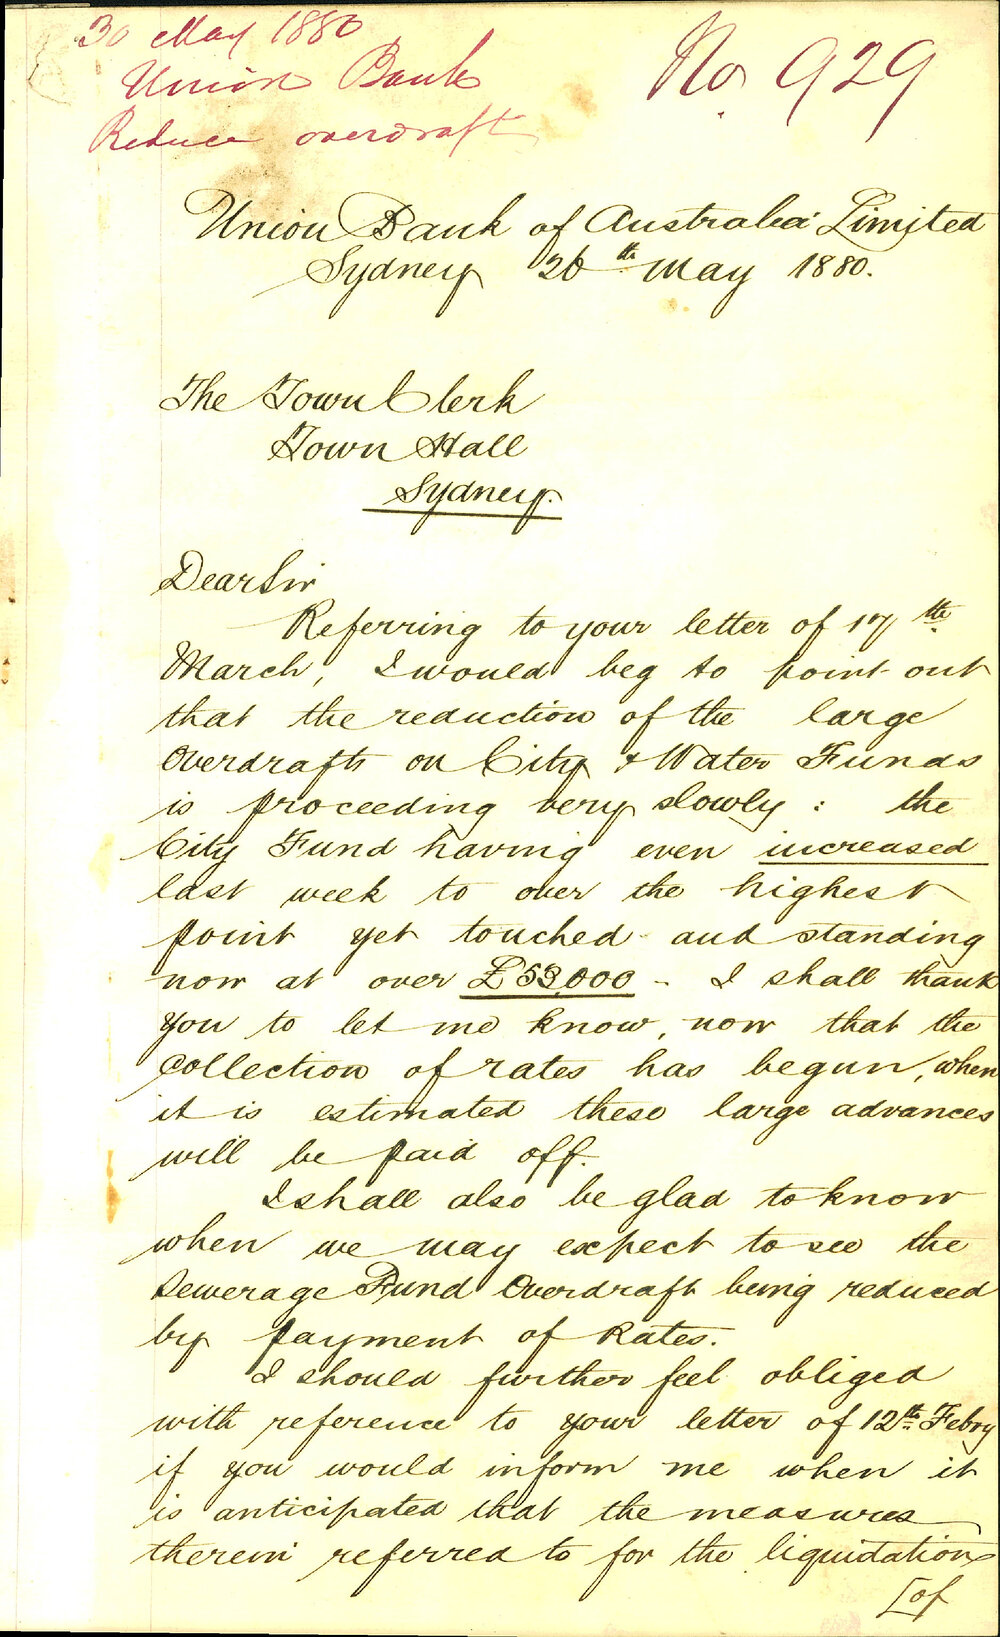 30 May 1880
Union Bank
Reduce overdraft
No 929
Union Bank of Australia Limited
Sydney 26th May 1880.
The Town Clerk
Town Hall
Sydney.
Dear Sir
Referring to your letter of 17th
March, I would beg to point out
that the reduction of the large
Overdrafts on City & Water Funds
is proceeding very slowly: the
City Fund having even increased
last week to over the highest
point yet touched and standing
now at over £53,000 - I shall thank
you to let me know, now that the
collection of rates has begun, when
it is estimated these large advances
will be paid off.
I shall also be glad to know
when we may expect to see the
Sewerage Fund Overdraft being reduced
by payment of Rates.
I should further feel obliged
with reference to your letter of 12th Febry
if you would inform me when it
is anticipated that the measures
therein referred to for the liquidation
[of